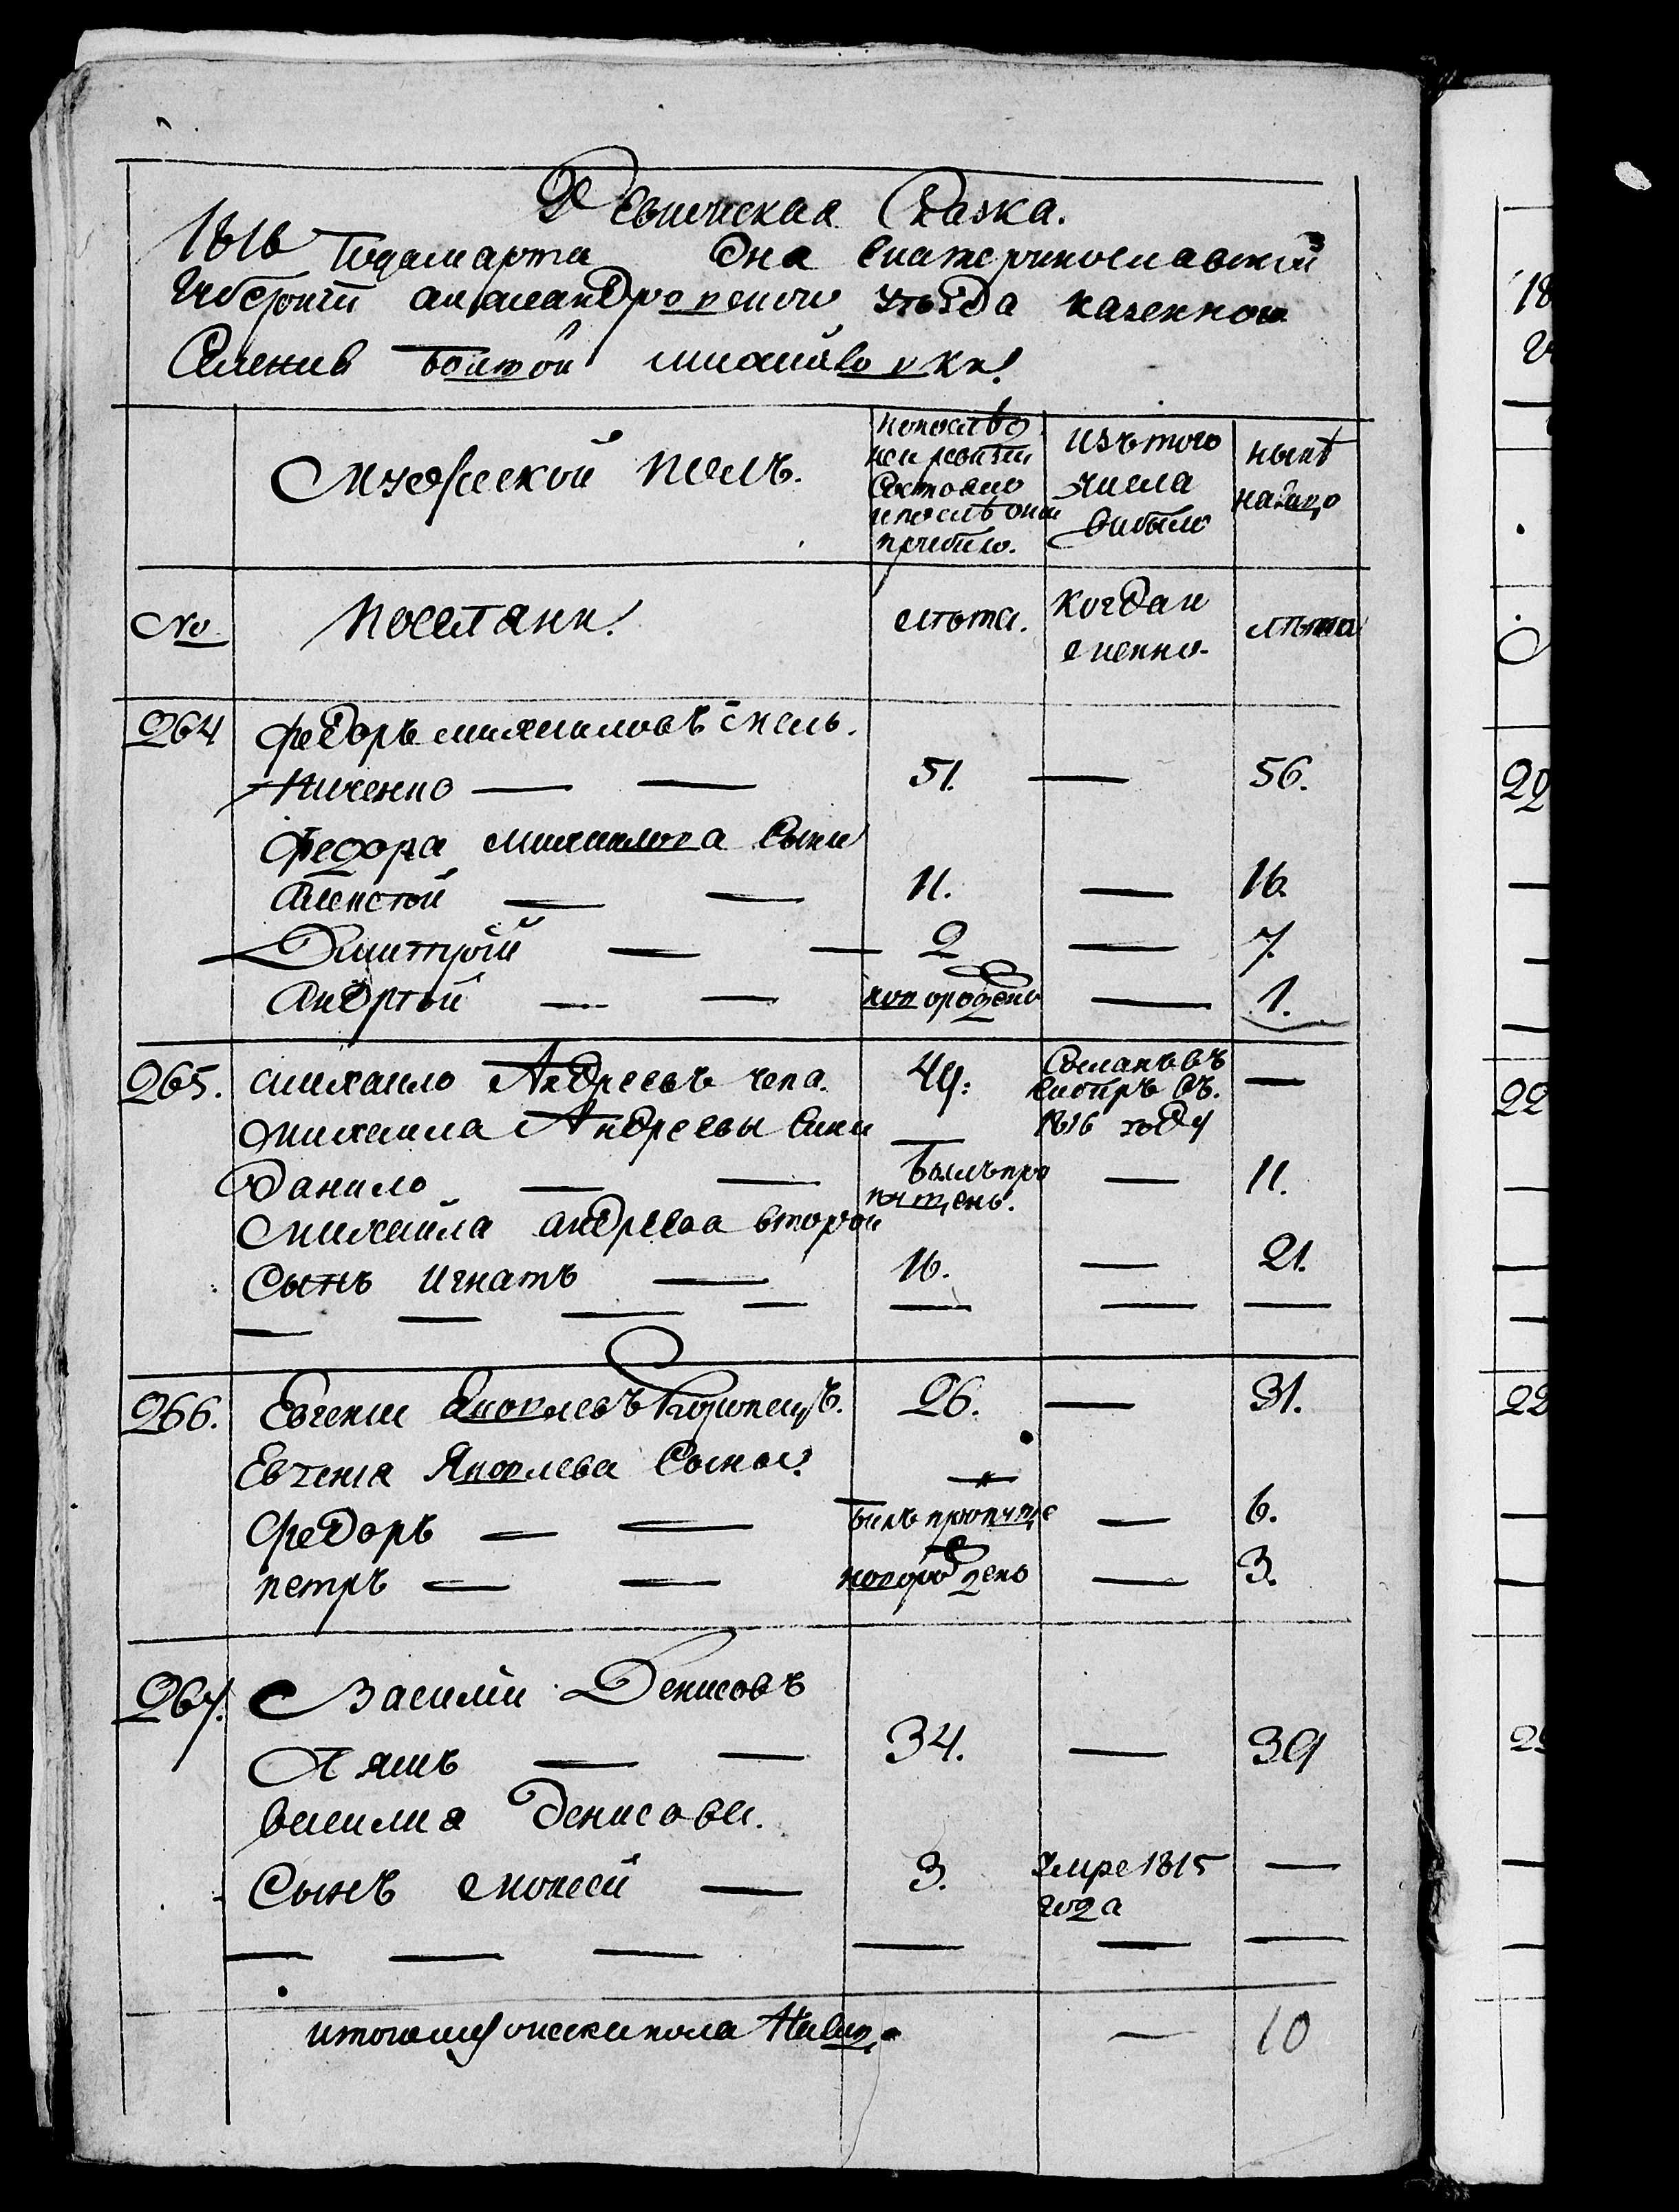 Ревижская Сказка.
1816 Года марта дня Екатеринославской
Губерніи александровского уѣзда казенного
Селенія Болшой михайловки
Мужеской полъ.
по послѣд
ней ревизіи
Состояло
и послѣ оной
прибыло.
изъ того
числа
выбыло
нынѣ
налицо
No
поселяни
лѣта.
когда и
менно.
лѣта
264
федоръ михаиловъ Емель.
яниченко
51.
56.
Федора михаилова Сыни
Алексѣй
11.
16.
Дмитрій
2
7.
Андрѣй
новорожденъ
1.
265.
михаило Андреевъ чепа.
49.
Сосланъ въ
сибиръ въ
1816 году
михаила Андреевы Сини
Данило
былъ про
пущенъ.
11.
михаила андреева второй
Сынъ игнатъ
16.
21.
266.
Евгени Яковлевъ Коропецъ.
26.
31.
Евгения Яковлева Сыны
Федоръ
билъ пропуще
6.
петръ
новорожденъ
3.
267.
Василій Денисовъ
Ляшъ
34.
39
василия Денисова.
Сынъ мокей
3.
умре 1815
года
итого мужеска пола налицо
10
18
22
22